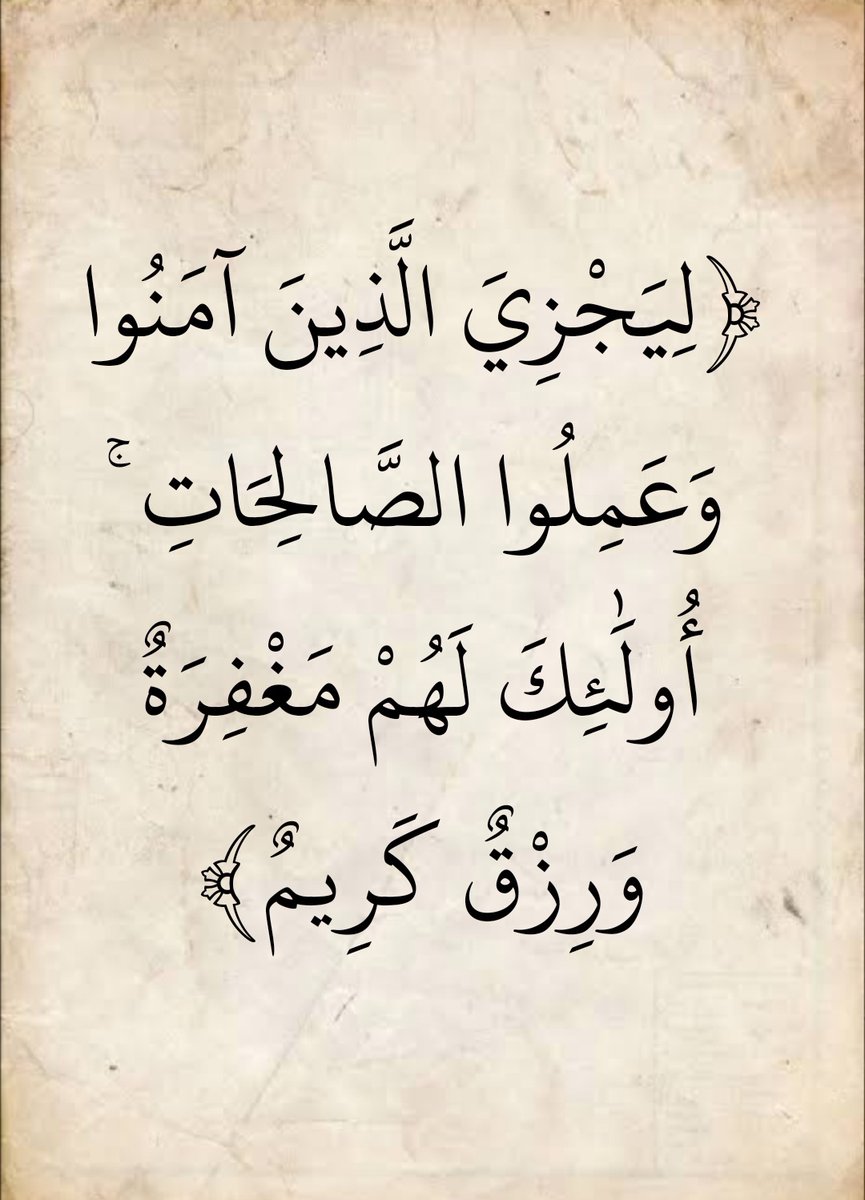 ﴿لِيَجْزِيَ الَّذِينَ آمَنُوا
وَعَمِلُوا الصَّالِحَاتِ ۚ
أُولَٰئِكَ لَهُمْ مَغْفِرَةٌ
وَرِزْقٌ كَرِيمٌ﴾